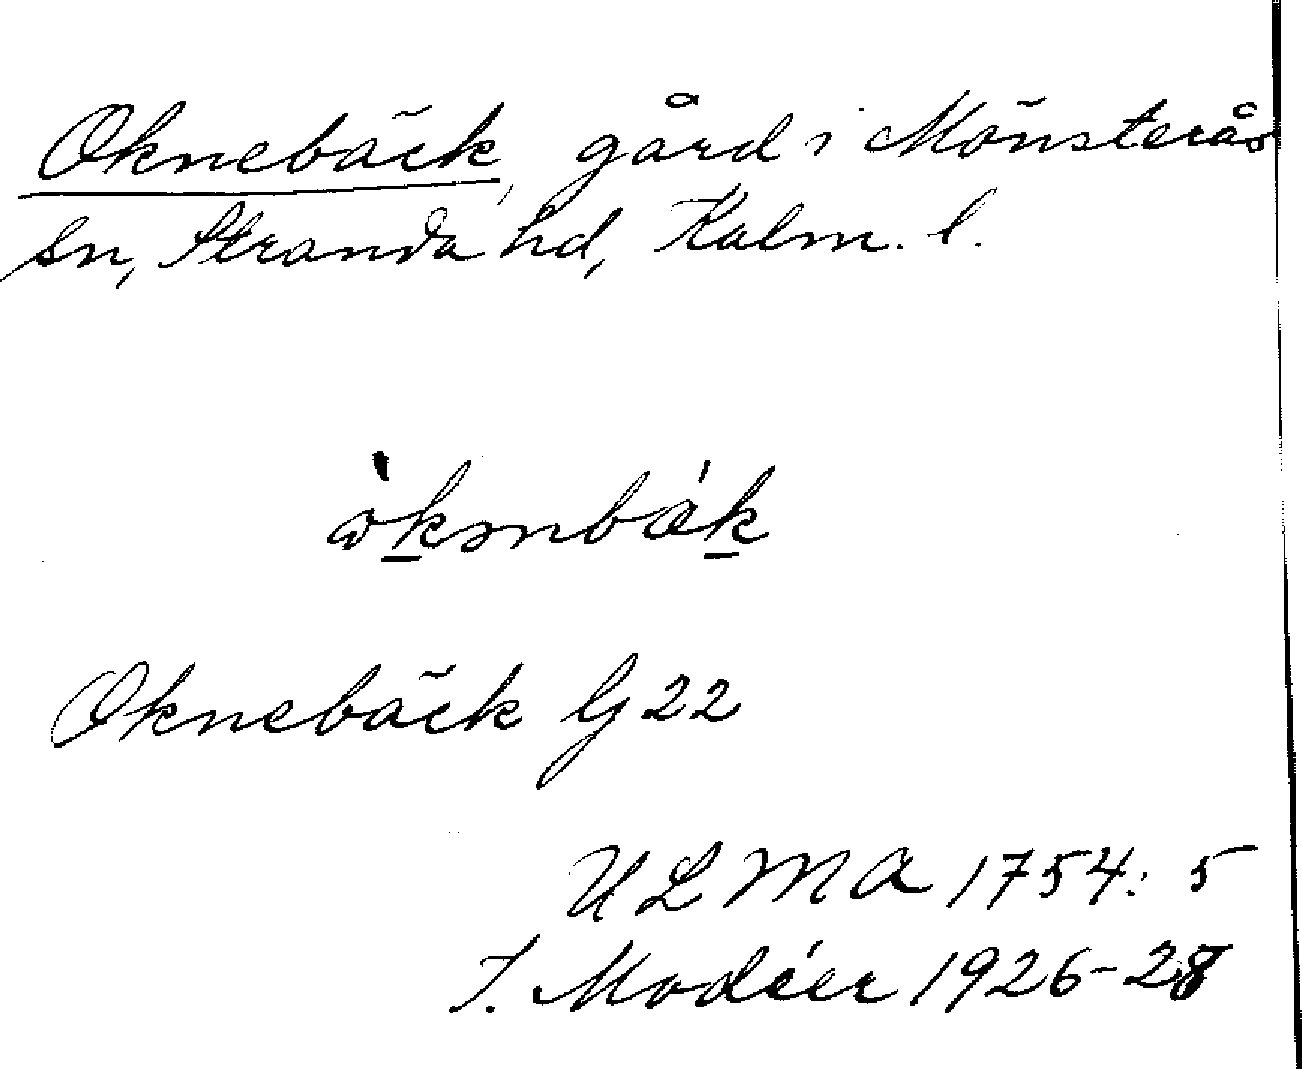 Oknebäck, gård i Mönsterås
sn, Stranda hd, Kalm. l.
Oknebäck G 22
ULMA 1754: 5
I. Modéer 1926-28